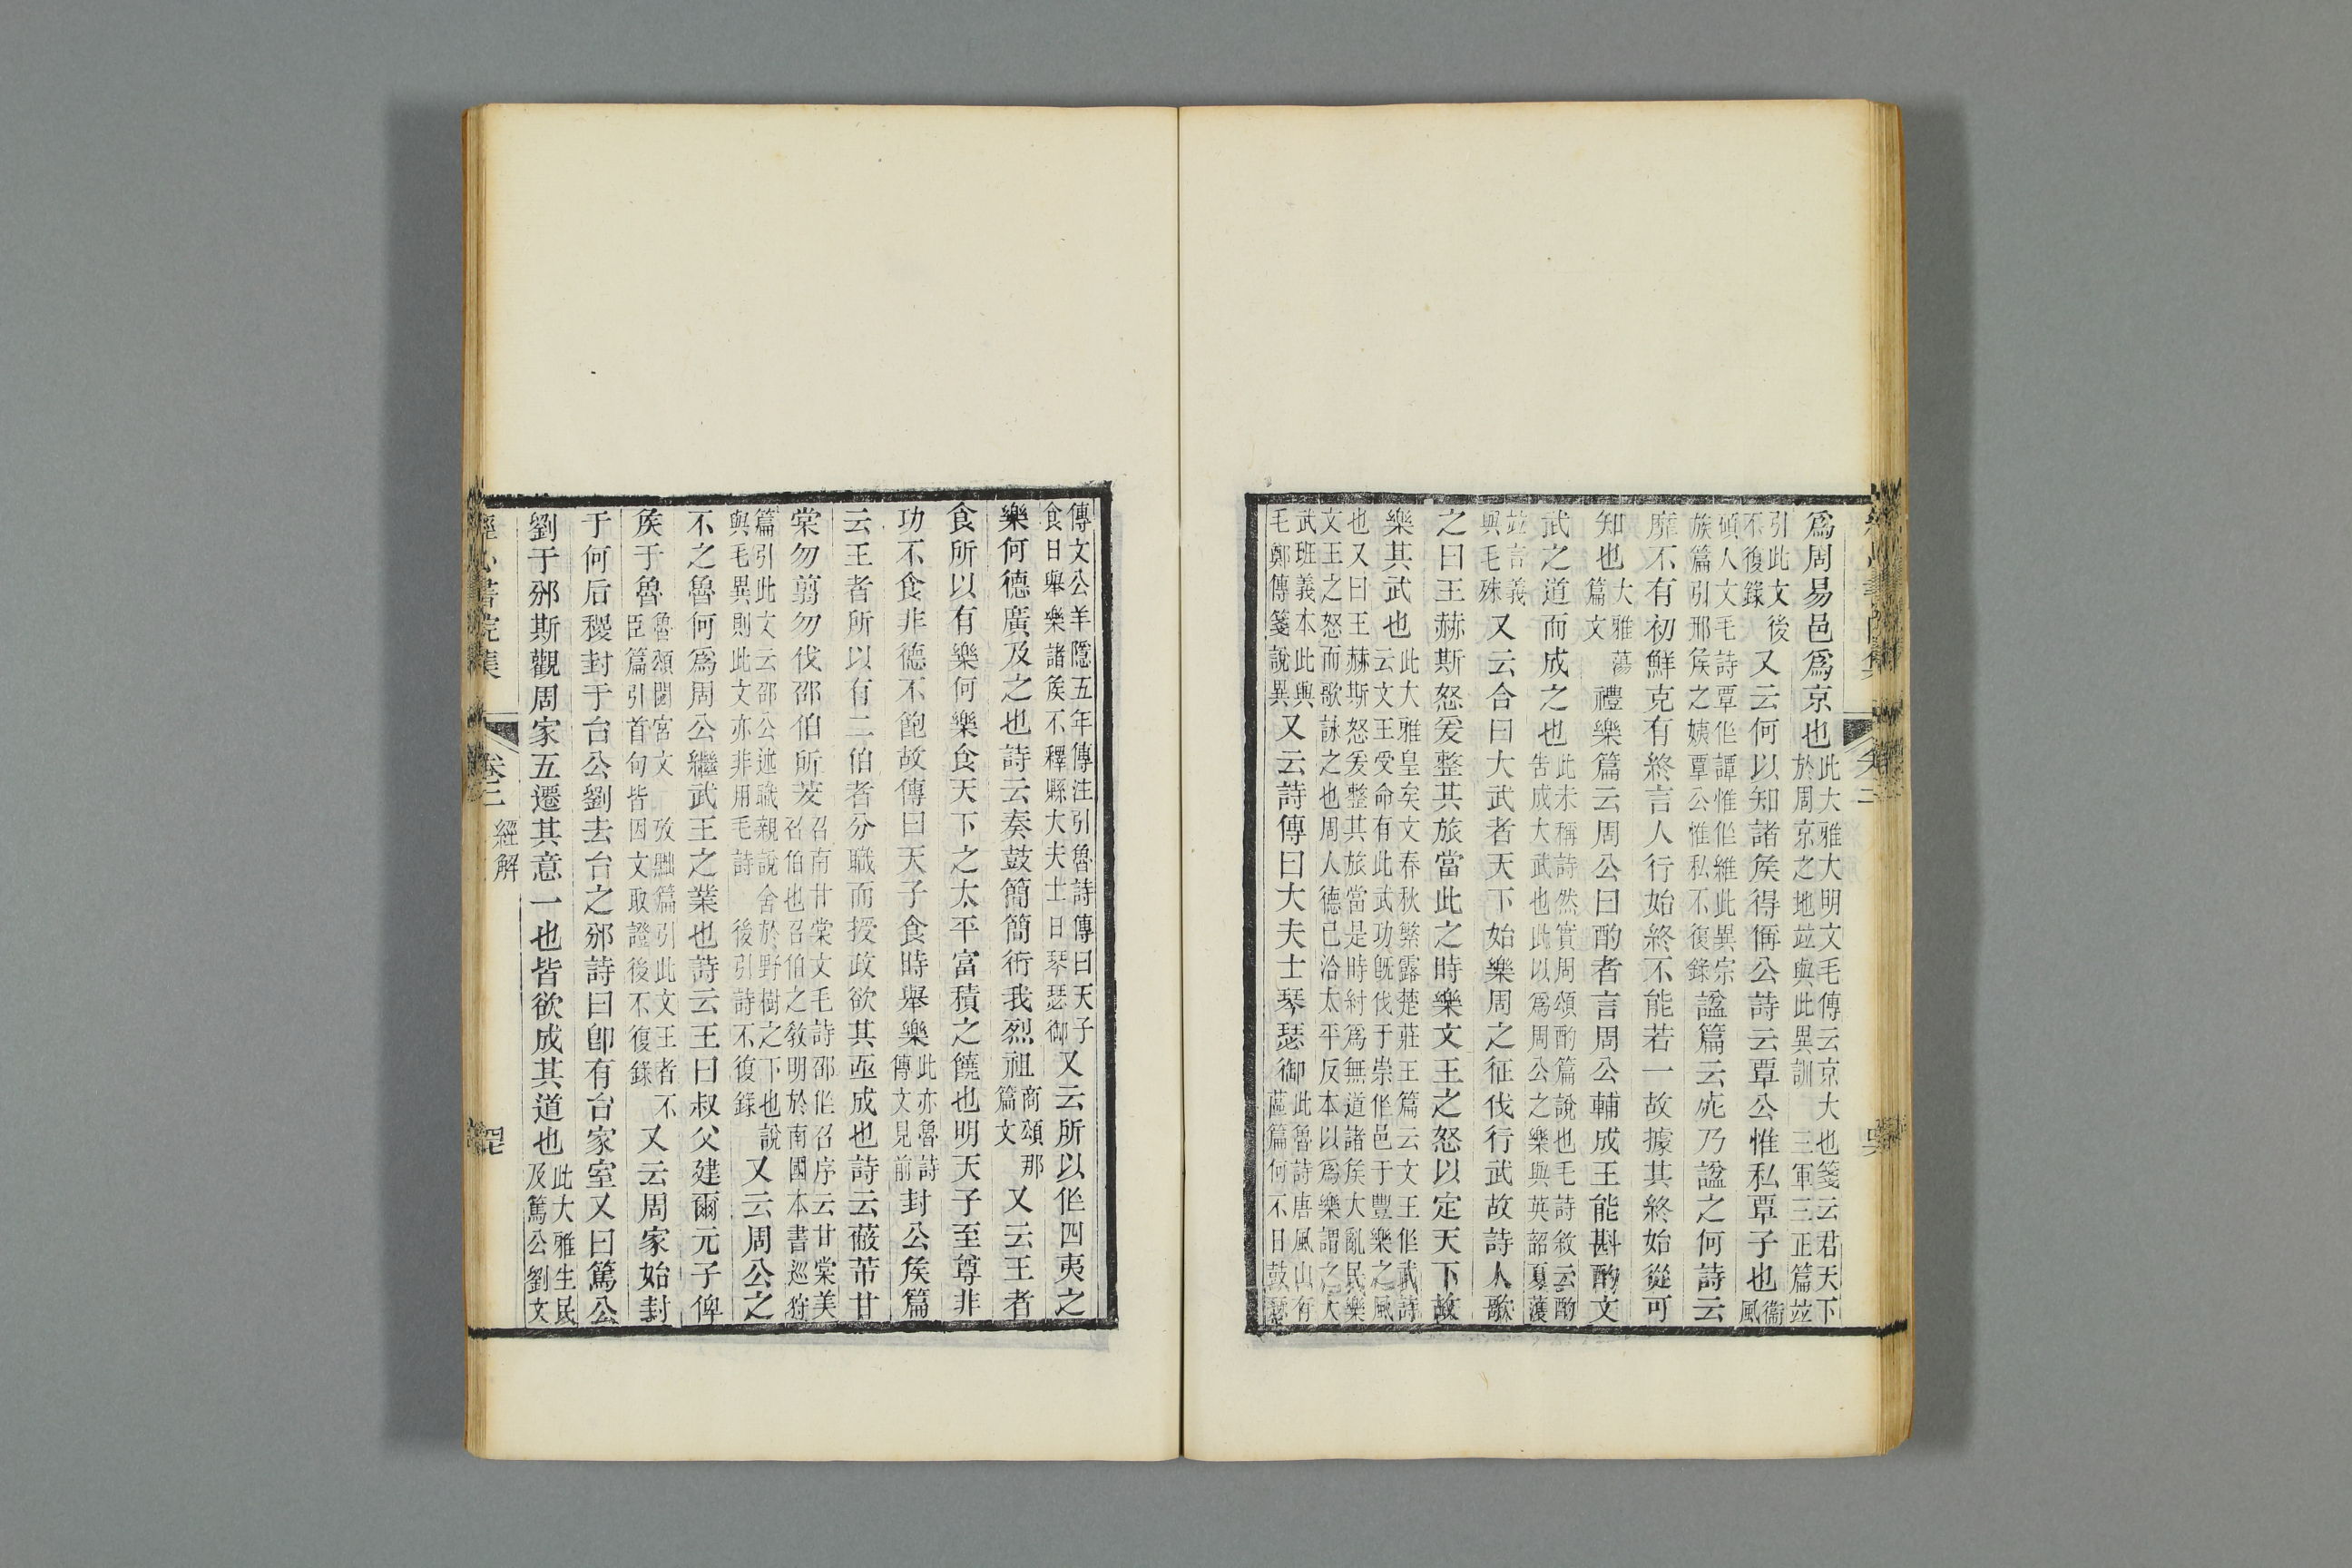 爲周易邑爲京也此大雅大明文毛傳云京大也箋云君天下
於周京之地竝與此異訓 三軍三正篇竝
引此文後
不復錄又云何以知諸矦得偁公詩云覃公惟私覃子也衞
風
碩人文毛詩覃作譚惟作維此異宗
族篇引邢矦之姨覃公惟私不復錄諡篇云㱙乃諡之何詩云
靡不有初鮮克有終言人行始終不能若一故據其終始從可
知也大雅蕩
篇文禮樂篇云周公曰酌者言周公輔成王能斟酌文
武之道而成之也此未稱詩然實周頌酌篇說也毛詩敘云酌
告成大武也此以爲周公之樂與英韶夏濩
竝言義
與毛殊又云合曰大武者天下始樂周之征伐行武故詩人歌
之曰王赫斯怒爰整其旅當此之時樂文王之怒以定天下故
樂其武也此大雅皇矣文春秋緐露楚莊王篇云文王作武詩
云文王受命有此武功旣伐于崇作邑于豐樂之風
也又曰王赫斯怒爰整其旅當是時紂爲無道諸矦大亂民樂
文王之怒而歌詠之也周人德已洽太平反本以爲樂謂之大
武班義本此與
毛鄭傳箋說異又云詩傳曰大夫士琴瑟御此魯詩唐風山有
蓲篇何不日鼓瑟
傳文公羊隱五年傳注引魯詩傳曰天子
食日舉樂諸矦不釋縣大夫士日琴瑟御又云所以作四夷之
樂何德廣及之也詩云奏鼓簡簡衎我烈祖商頌那
篇文又云王者
食所以有樂何樂食天下之太平富積之饒也明天子至尊非
功不食非德不飽故傳曰天子食時舉樂此亦魯詩
傳文見前封公矦篇
云王者所以有二伯者分職而授政欲其亟成也詩云蔽芾甘
棠勿翦勿伐邵伯所茇召南甘棠文毛詩邵作召序云甘棠美
召伯也召伯之敎明於南國本書巡狩
篇引此文云邵公述職親說舍於野樹之下也說
與毛異則此文亦非用毛詩 後引詩不復錄又云周公之
不之魯何爲周公繼武王之業也詩云王曰叔父建爾元子俾
矦于魯魯頌閟宮文 攷黜篇引此文王者不
臣篇引首句皆因文取證後不復錄又云周家始封
于何后稷封于台公劉去台之邠詩曰卽有台家室又曰篤公
劉于邠斯觀周家五遷其意一也皆欲成其道也此大雅生民
及篤公劉文
經心書院集 卷二 經解